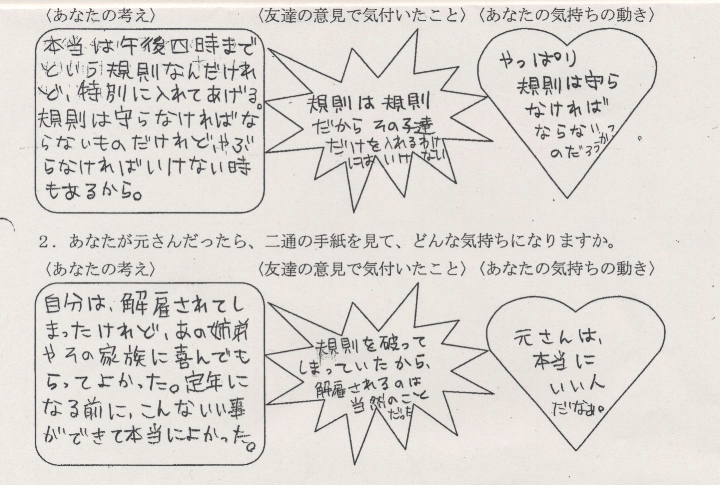 〈あなたの考え〉
〈友達の意見で気付いたこと〉
〈あなたの気持ちの動き〉
本当は午後四時まで
という規則なんだけれ
ど、特別に入れてあげる。
規則は守らなければな
らないものだけれど、やぶ
らなければいけない時
もあるから。
規則は規則
だからその子達
だけを入れるわけ
にはいけない
やっぱり
規則は守ら
なければ
ならない
のだろうか
2．あなたが元さんだったら、二通の手紙を見て、どんな気持ちになりますか。
〈あなたの考え〉
〈友達の意見で気付いたこと〉
〈あなたの気持ちの動き〉
自分は、解雇されてし
まったけれど、あの姉弟
やその家族に喜んでも
らってよかった。定年に
なる前に、こんないい事
ができて本当によかった。
規則を破って
しまっていたから、
解雇されるのは
当然のこと
だった
元さんは、
本当に
いい人
だなぁ。